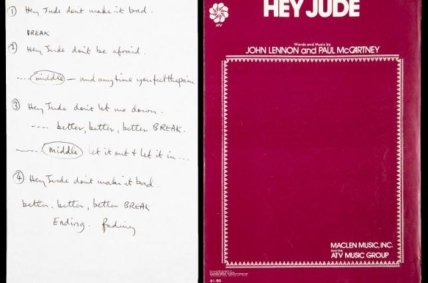 ① Hey Jude don't make it bad.
BREAK
② Hey Jude don't be afraid.
..... middle — and anytime you feel the pain
③ Hey Jude don't let me down.
.... better, better, better BREAK.
...... middle let it out & let it in ...
④ Hey Jude don't make it bad.
better, better, better BREAK
Ending. fading
ATV
HEY JUDE
Words and Music by
JOHN LENNON and PAUL McCARTNEY
MACLEN MUSIC, INC.
ATV MUSIC GROUP